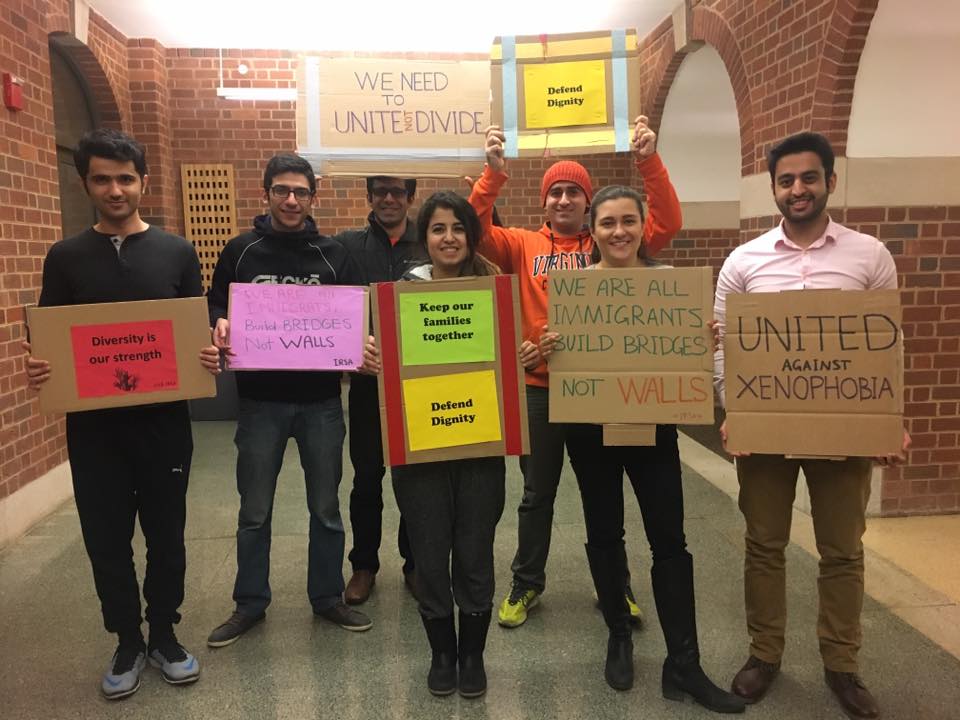 WE NEED
TO
UNITE NOT DIVIDE
Defend
Dignity
Diversity is
our strength
WE ARE ALL
IMMIGRANTS
Build BRIDGES
Not WALLS
IRSA
Keep our
families
together
Defend
Dignity
VIRGINIA
WE ARE ALL
IMMIGRANTS
BUILD BRIDGES
NOT WALLS
UNITED
AGAINST
XENOPHOBIA